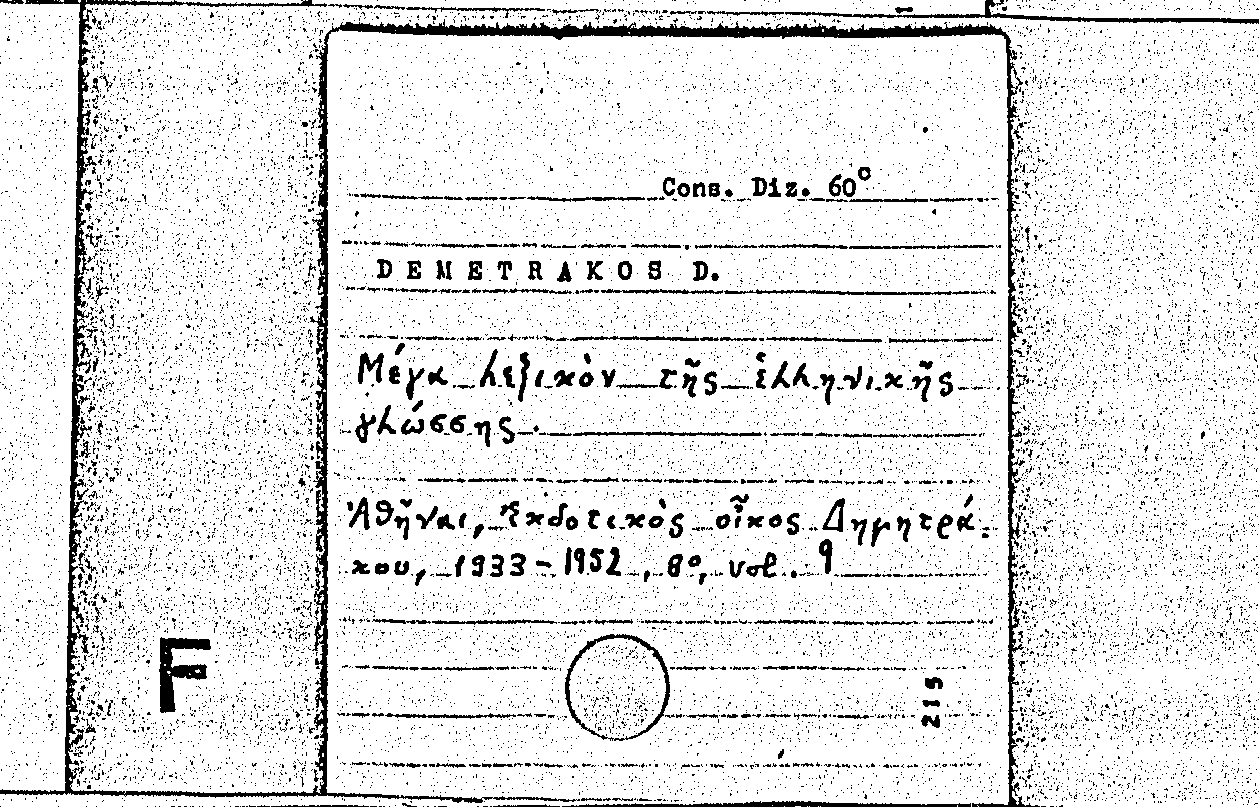 Cons. Diz. 60°
DEMETRAKOS D.
Μέγα λεξικὸν τῆς ἑλληνικῆς
γλώσσης.
Ἀθῆναι, Ἐκδοτικὸς οἶκος Δημητρά-
κου, 1933-1952, 8°, vol. 9
F
215